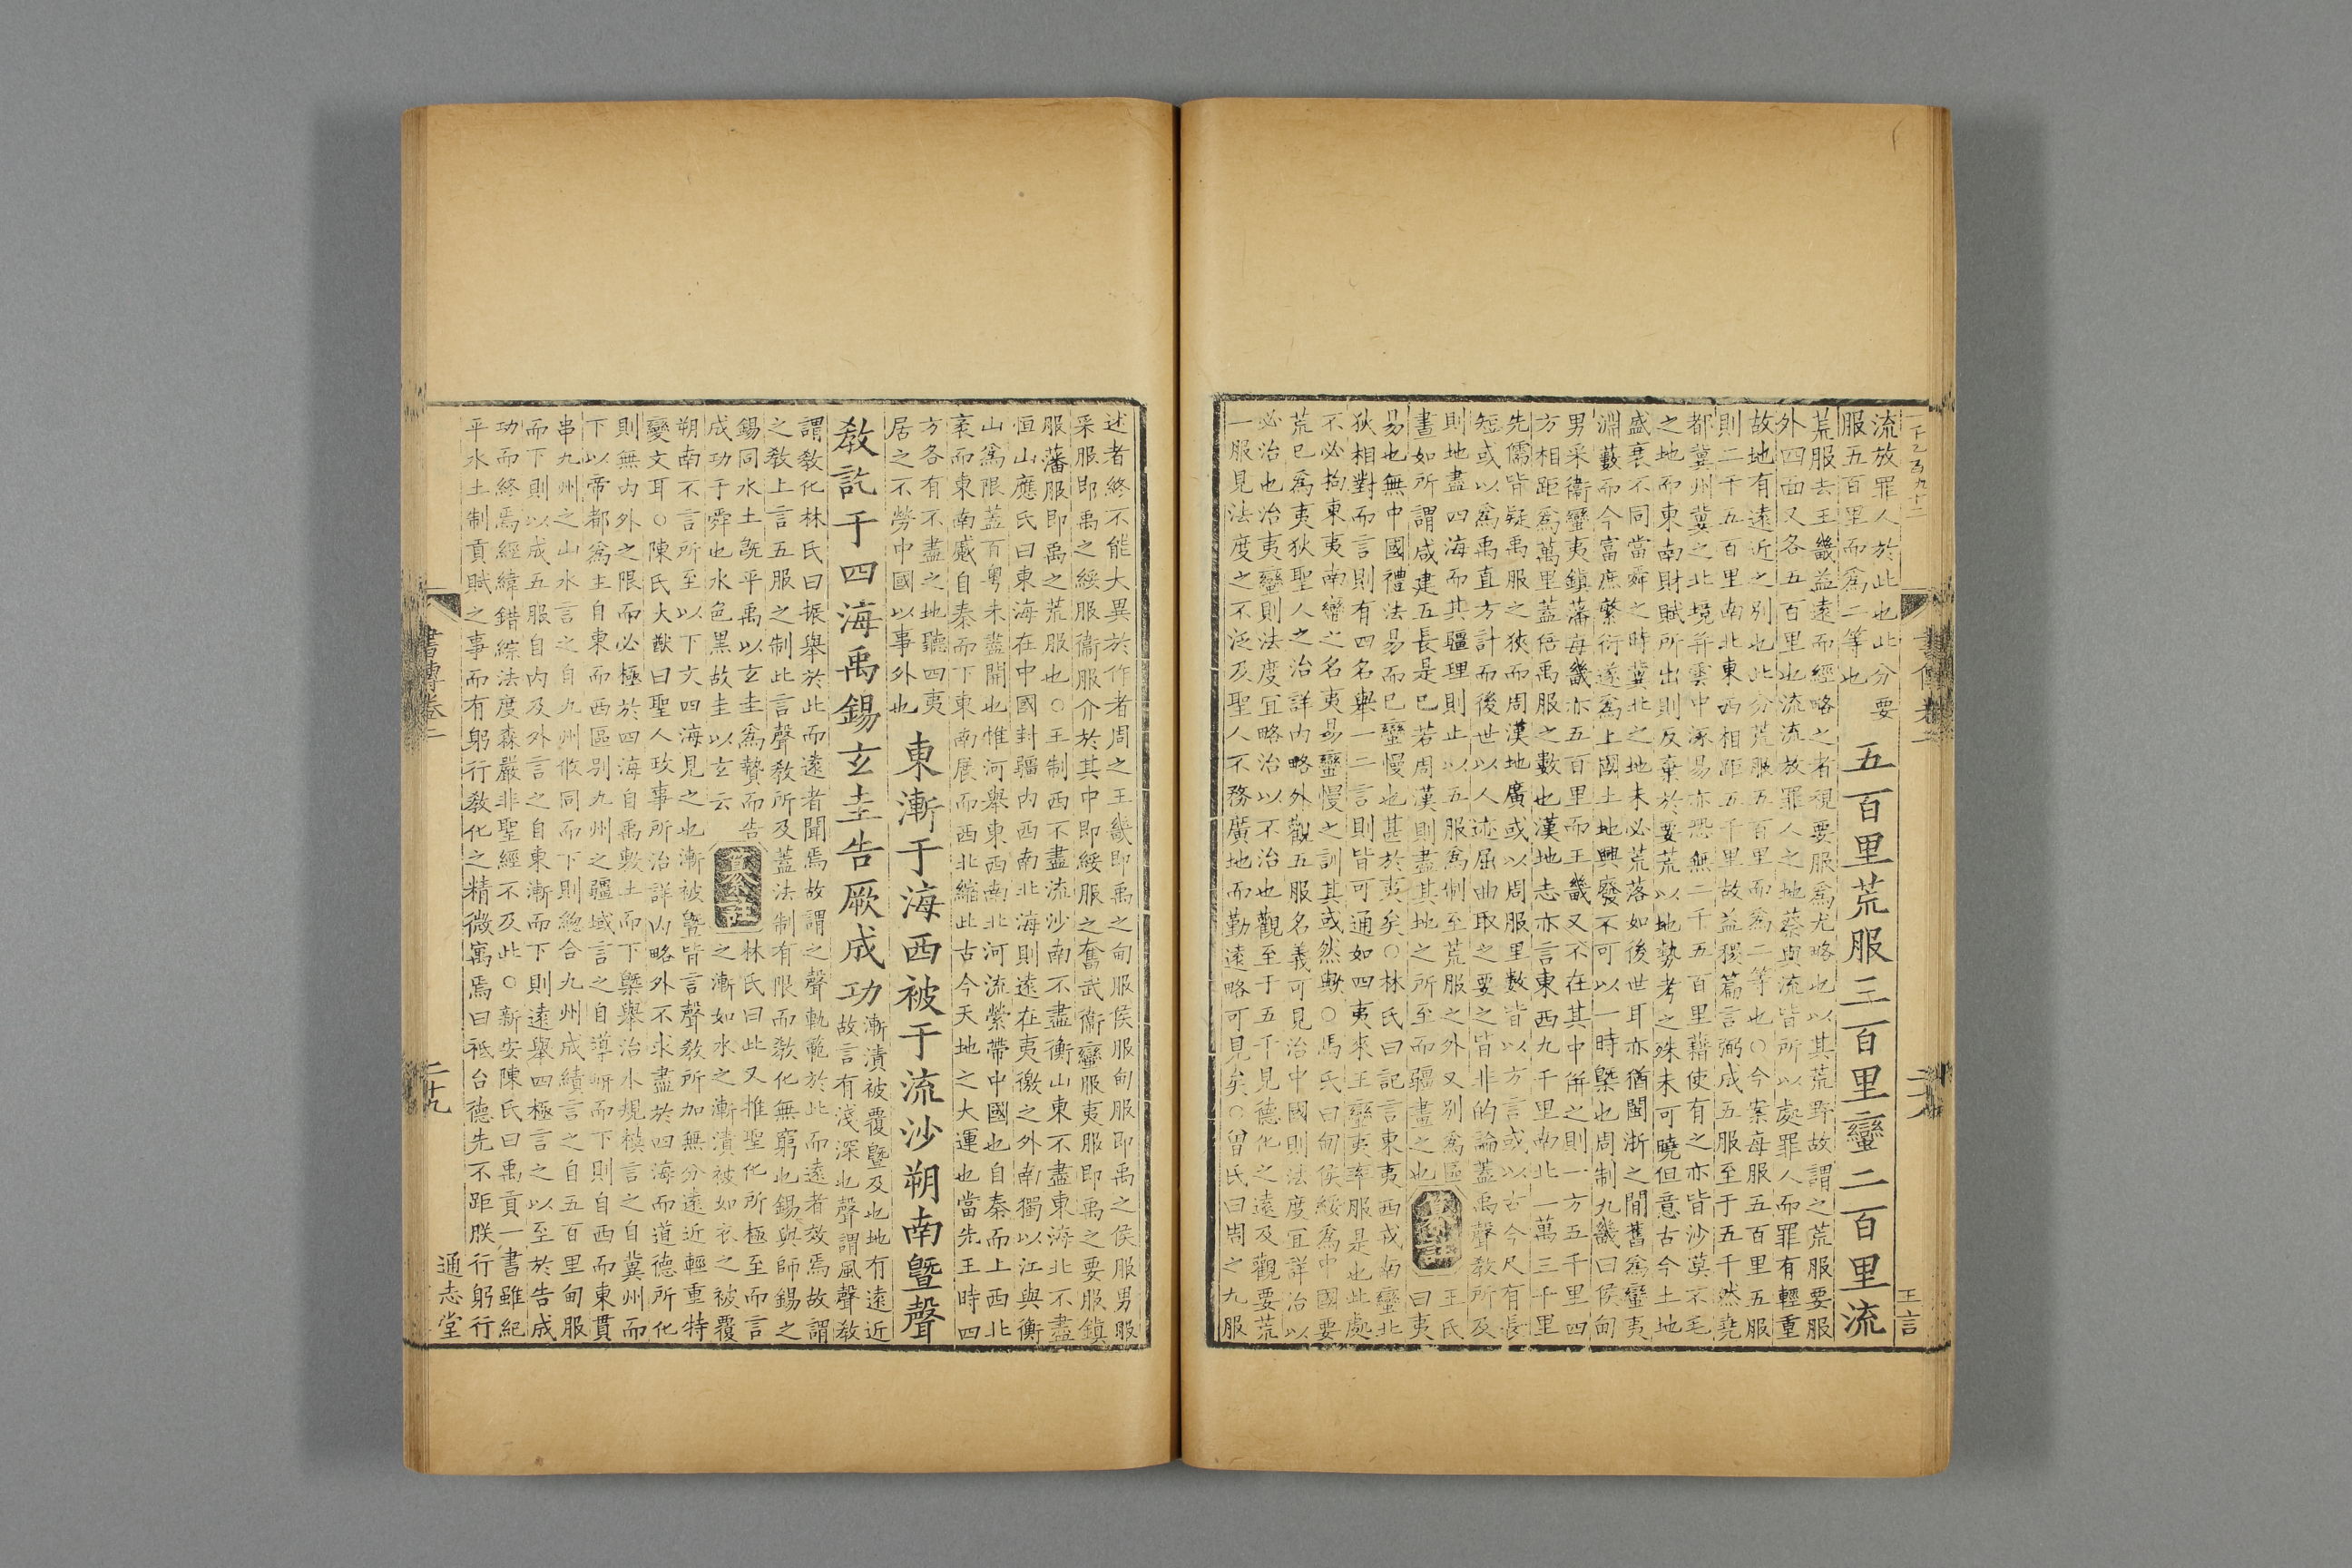 流放罪人於此也此分要
服五百里而爲二等也
五百里荒服三百里蠻二百里流
荒服去王畿益遠而經略之者視要服爲尤略也以其荒野故謂之荒服要服
外四面又各五百里也流流放罪人之地蔡與流皆所以處罪人而罪有輕重
故地有遠近之别也此分荒服五百里而爲二等也○今案每服五百里五服
則二千五百里南北東西相距五千里故益稷篇言弼成五服至于五千然堯
都冀州冀之北境幷雲中涿易亦恐無二千五百里藉使有之亦皆沙莫不毛
之地而東南財賦所出則反棄於要荒以地勢考之殊未可曉但意古今土地
盛衰不同當舜之時冀北之地未必荒落如後世耳亦猶閩浙之間舊爲蠻夷
淵藪而今富庶繁衍遂爲上國土地興廢不可以一時槩也周制九畿曰侯甸
男采衞蠻夷鎭藩每畿亦五百里而王畿又不在其中倂之則一方五千里四
方相距爲萬里蓋倍禹服之數也漢地志亦言東西九千里南北一萬三千里
先儒皆疑禹服之狹而周漢地廣或以周服里數皆以方言或以古今尺有長
短或以爲禹直方計而後世以人迹屈曲取之要之皆非的論蓋禹聲教所及
則地盡四海而其疆理則止以五服爲制至荒服之外又别爲區
畫如所謂咸建五長是已若周漢則盡其地之所至而疆畫之也
王氏曰夷
易也無中國禮法易而已蠻慢也甚於夷矣○林氏曰記言東夷西戎南蠻北
狄相對而言則有四名舉一二言則皆可通如四夷來王蠻夷率服是也此處
不必拘東夷南蠻之名夷易蠻慢之訓其或然歟○馬氏曰甸侯綏爲中國要
荒已爲夷狄聖人之治詳内略外觀五服名義可見治中國則法度宜詳治以
必治也治夷蠻則法度宜略治以不治也觀至于五千見德化之遠及觀要荒
一服見法度之不泛及聖人不務廣地而勤遠略可見矣○曾氏曰周之九服
述者終不能大異於作者周之王畿即禹之甸服侯服甸服即禹之侯服男服
采服即禹之綏服衞服介於其中即綏服之奮武衞蠻服夷服即禹之要服鎭
服藩服即禹之荒服也○王制西不盡流沙南不盡衡山東不盡東海北不盡
恒山應氏曰東海在中國封疆内西南北海則遠在夷徼之外南獨以江與衡
山爲限蓋百粤未盡開也惟河舉東西南北河流縈帶中國也自秦而上西北
袤而東南蹙自秦而下東南展而西北縮此古今天地之大運也當先王時四
方各有不盡之地聽四夷
居之不勞中國以事外也
東漸于海西被于流沙朔南曁聲
教訖于四海禹錫玄圭告厥成功
漸漬被覆曁及也地有遠近
故言有淺深也聲謂風聲教
謂教化林氏曰振舉於此而遠者聞焉故謂之聲軌範於此而遠者效焉故謂
之教上言五服之制此言聲教所及蓋法制有限而教化無窮也錫與師錫之
錫同水土既平禹以玄圭爲贄而告
成功于舜也水色黑故圭以玄云
林氏曰此又推聖化所極至而言
之漸如水之漸漬被如衣之被覆
朔南不言所至以下文四海見之也漸被曁皆言聲教所加無分遠近輕重特
變文耳○陳氏大猷曰聖人攷事所治詳内略外不求盡於四海而道德所化
則無内外之限而必極於四海自禹敷土而下槩舉治水規模言之自冀州而
下以帝都爲主自東而西區别九州之疆域言之自導岍而下則自西而東貫
串九州之山水言之自九州攸同而下則總合九州成績言之自五百里甸服
而下則以成五服自内及外言之自東漸而下則遠舉四極言之以至於告成
功而終焉經緯錯綜法度森嚴非聖經不及此○新安陳氏曰禹貢一書雖紀
平水土制貢賦之事而有躬行教化之精微寓焉曰祗台德先不距朕行躬行
書傳卷二
二十九
通志堂